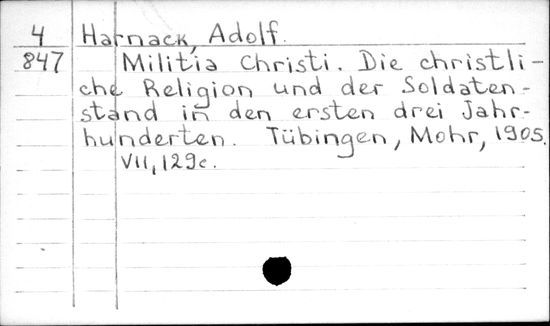 4 Harnack, Adolf.
847 Militia Christi. Die christli-
che Religion und der Soldaten-
stand in den ersten drei Jahr-
hunderten. Tübingen, Mohr, 1905.
VII, 129c.